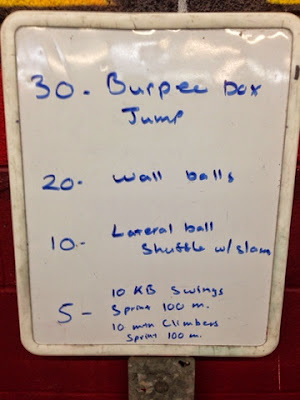 30- Burpee box
Jump
20- Wall balls
10- Lateral ball
Shuttle w/slam
10 KB Swings
5- Sprint 100 m.
10 mtn Climbers
Sprint 100 m.